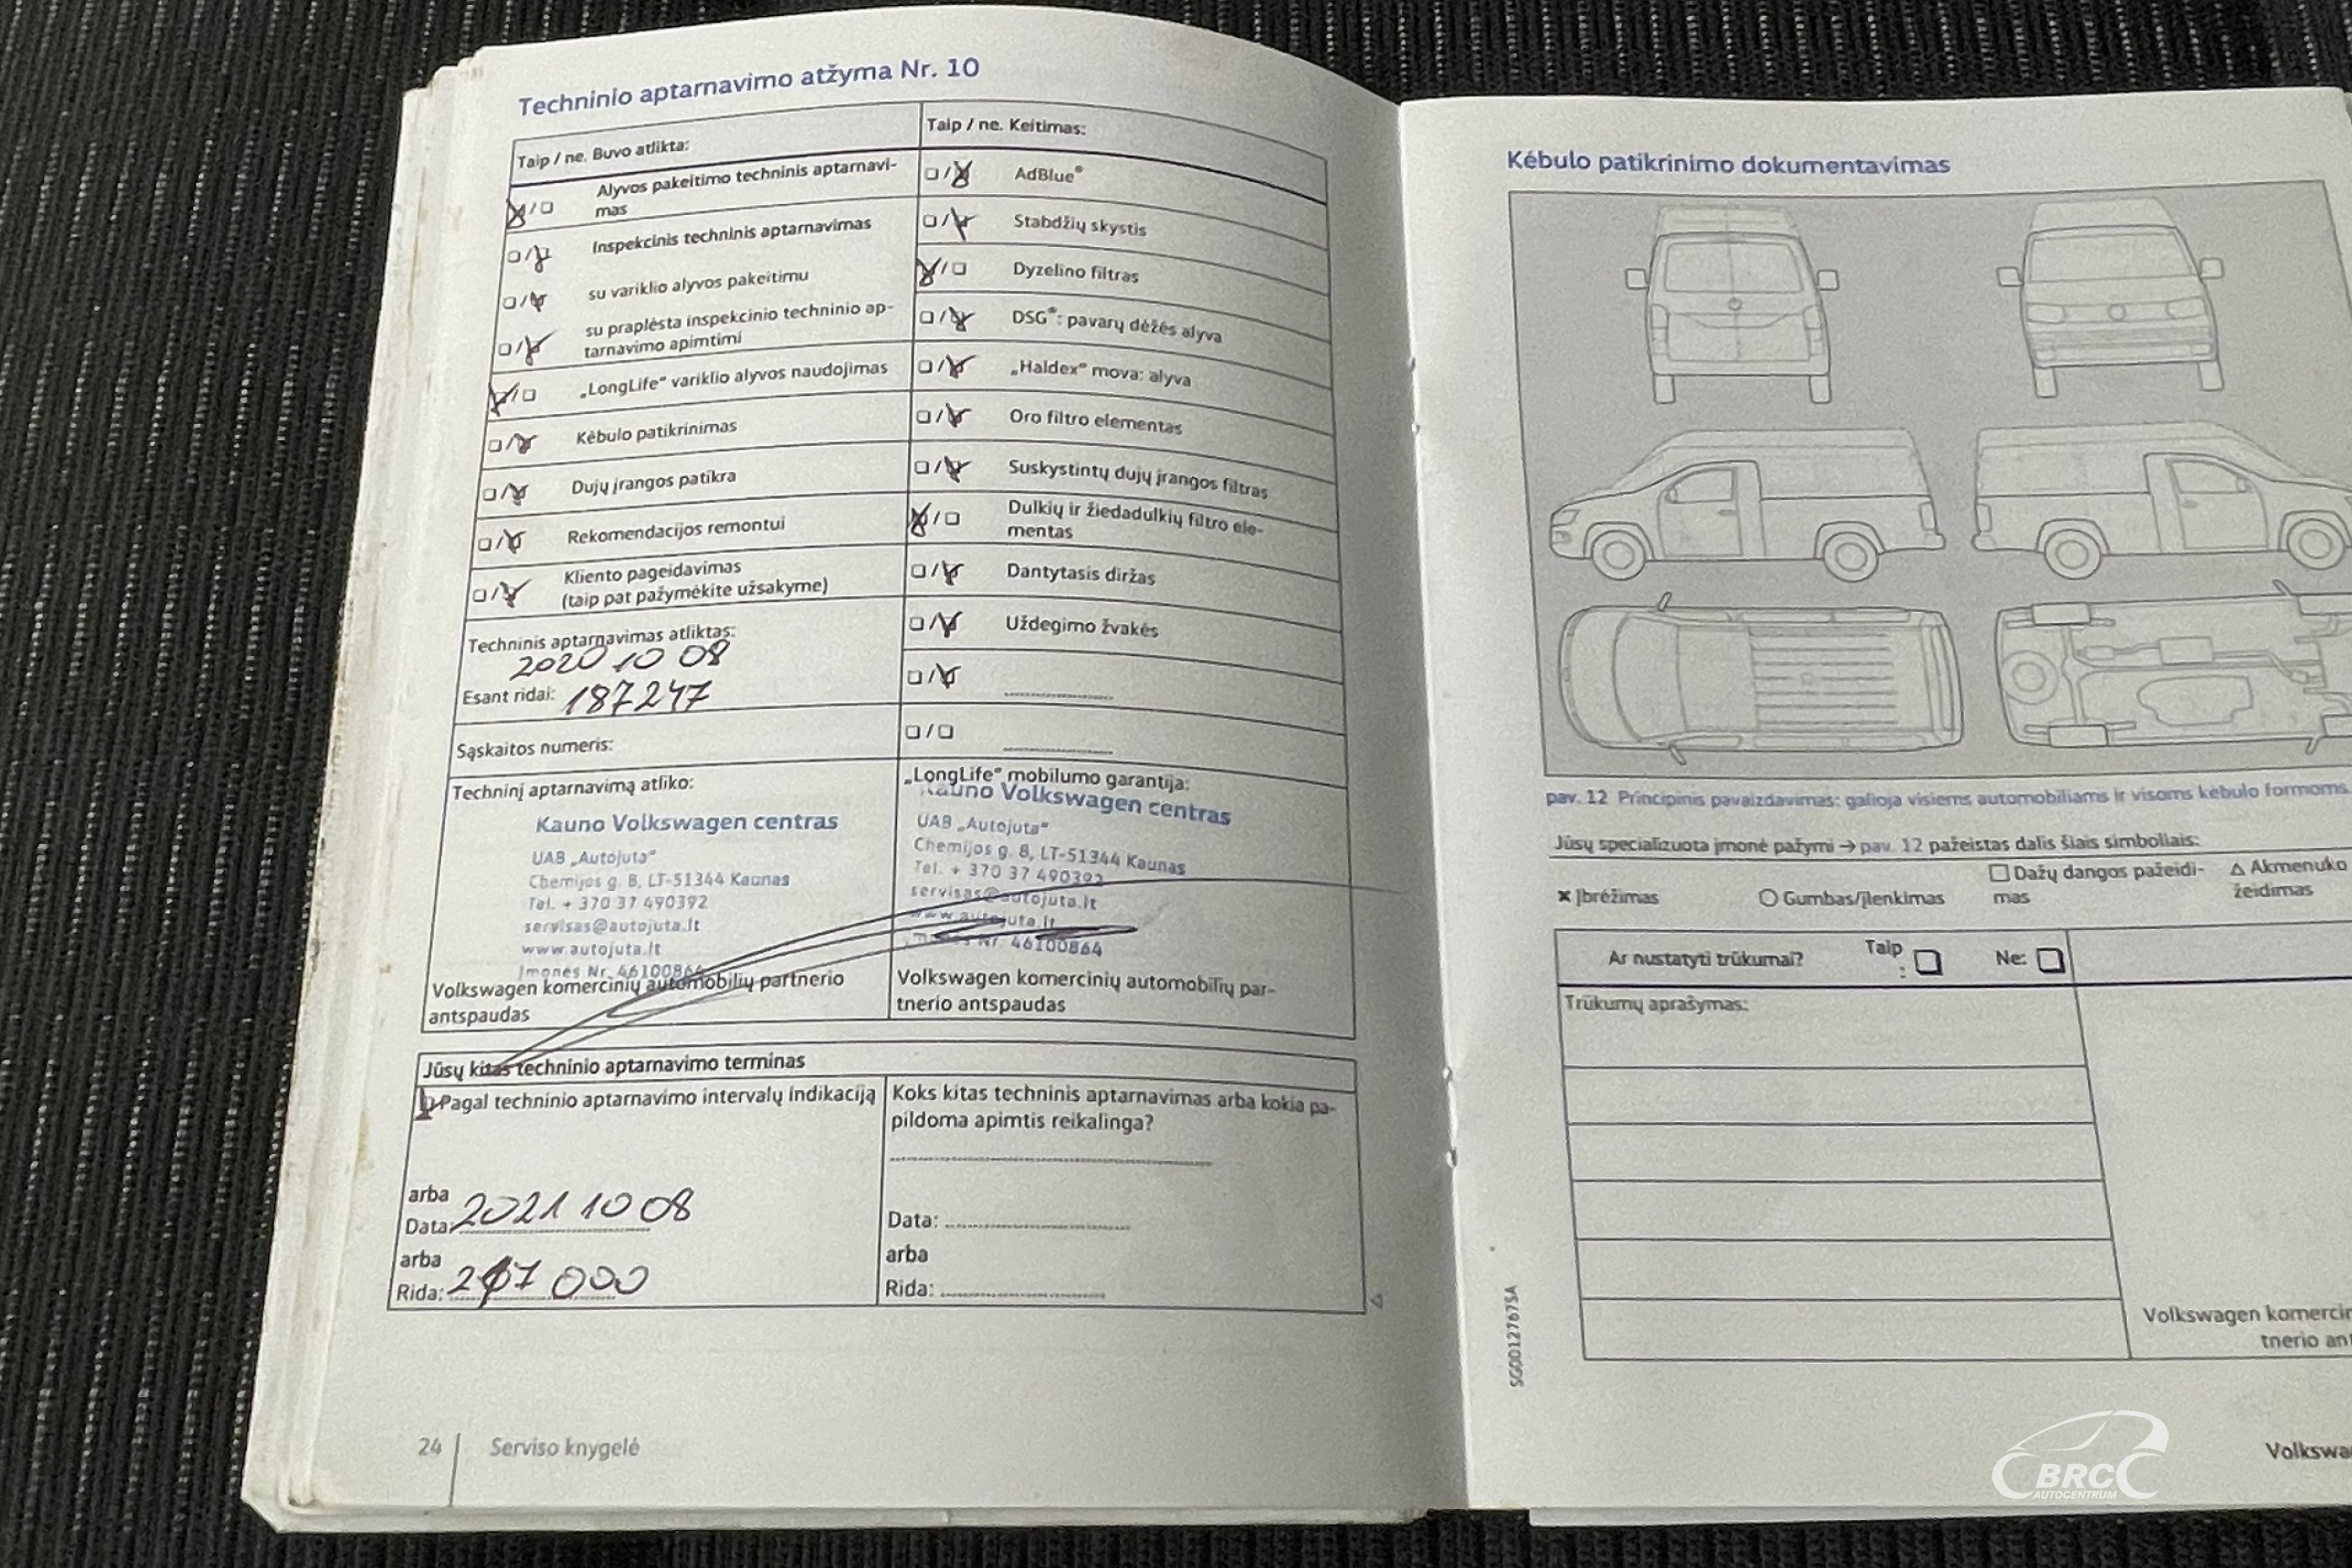 Techninio aptarnavimo atžyma Nr. 10
Taip / ne. Buvo atlikta:
Alyvos pakeitimo techninis aptarnavi-
mas
Inspekcinis techninis aptarnavimas
su variklio alyvos pakeitimu
su praplėsta inspekcinio techninio ap-
tarnavimo apimtimi
„LongLife“ variklio alyvos naudojimas
Kėbulo patikrinimas
Dujų įrangos patikra
Rekomendacijos remontui
Kliento pageidavimas
(taip pat pažymėkite užsakyme)
Techninis aptarnavimas atliktas:
2020 10 08
Esant ridai: 187247
Sąskaitos numeris:
Techninį aptarnavimą atliko:
Kauno Volkswagen centras
UAB „Autojuta“
Chemijos g. 8, LT-51344 Kaunas
Tel. + 370 37 490392
servisas@autojuta.lt
www.autojuta.lt
Įmonės Nr. 46100864
Volkswagen komercinių automobilių partnerio
antspaudas
Taip / ne. Keitimas:
AdBlue®
Stabdžių skystis
Dyzelino filtras
DSG®: pavarų dėžės alyva
„Haldex“ mova: alyva
Oro filtro elementas
Suskystintų dujų įrangos filtras
Dulkių ir žiedadulkių filtro ele-
mentas
Dantytasis diržas
Uždegimo žvakės
„LongLife“ mobilumo garantija:
Kauno Volkswagen centras
UAB „Autojuta“
Chemijos g. 8, LT-51344 Kaunas
Tel. + 370 37 490392
servisas@autojuta.lt
www.autojuta.lt
Įmonės Nr. 46100864
Volkswagen komercinių automobilių par-
tnerio antspaudas
Jūsų kitas techninio aptarnavimo terminas
Pagal techninio aptarnavimo intervalų indikaciją
arba
Data: 2021 10 08
arba
Rida: 217 000
Koks kitas techninis aptarnavimas arba kokia pa-
pildoma apimtis reikalinga?
Data:
arba
Rida:
24 Serviso knygelė
Kėbulo patikrinimo dokumentavimas
pav. 12 Principinis pavaizdavimas: galioja visiems automobiliams ir visoms kėbulo formoms.
Jūsų specializuota įmonė pažymi → pav. 12 pažeistas dalis šiais simboliais:
✖ Įbrėžimas
○ Gumbas/įlenkimas
□ Dažų dangos pažeidi-
mas
△ Akmenuko
žeidimas
Ar nustatyti trūkumai?
Taip
:
Ne:
Trūkumų aprašymas:
Volkswagen komercin
tnerio ant
SG0D127675A
Volkswa
BRC
AUTOCENTRUM